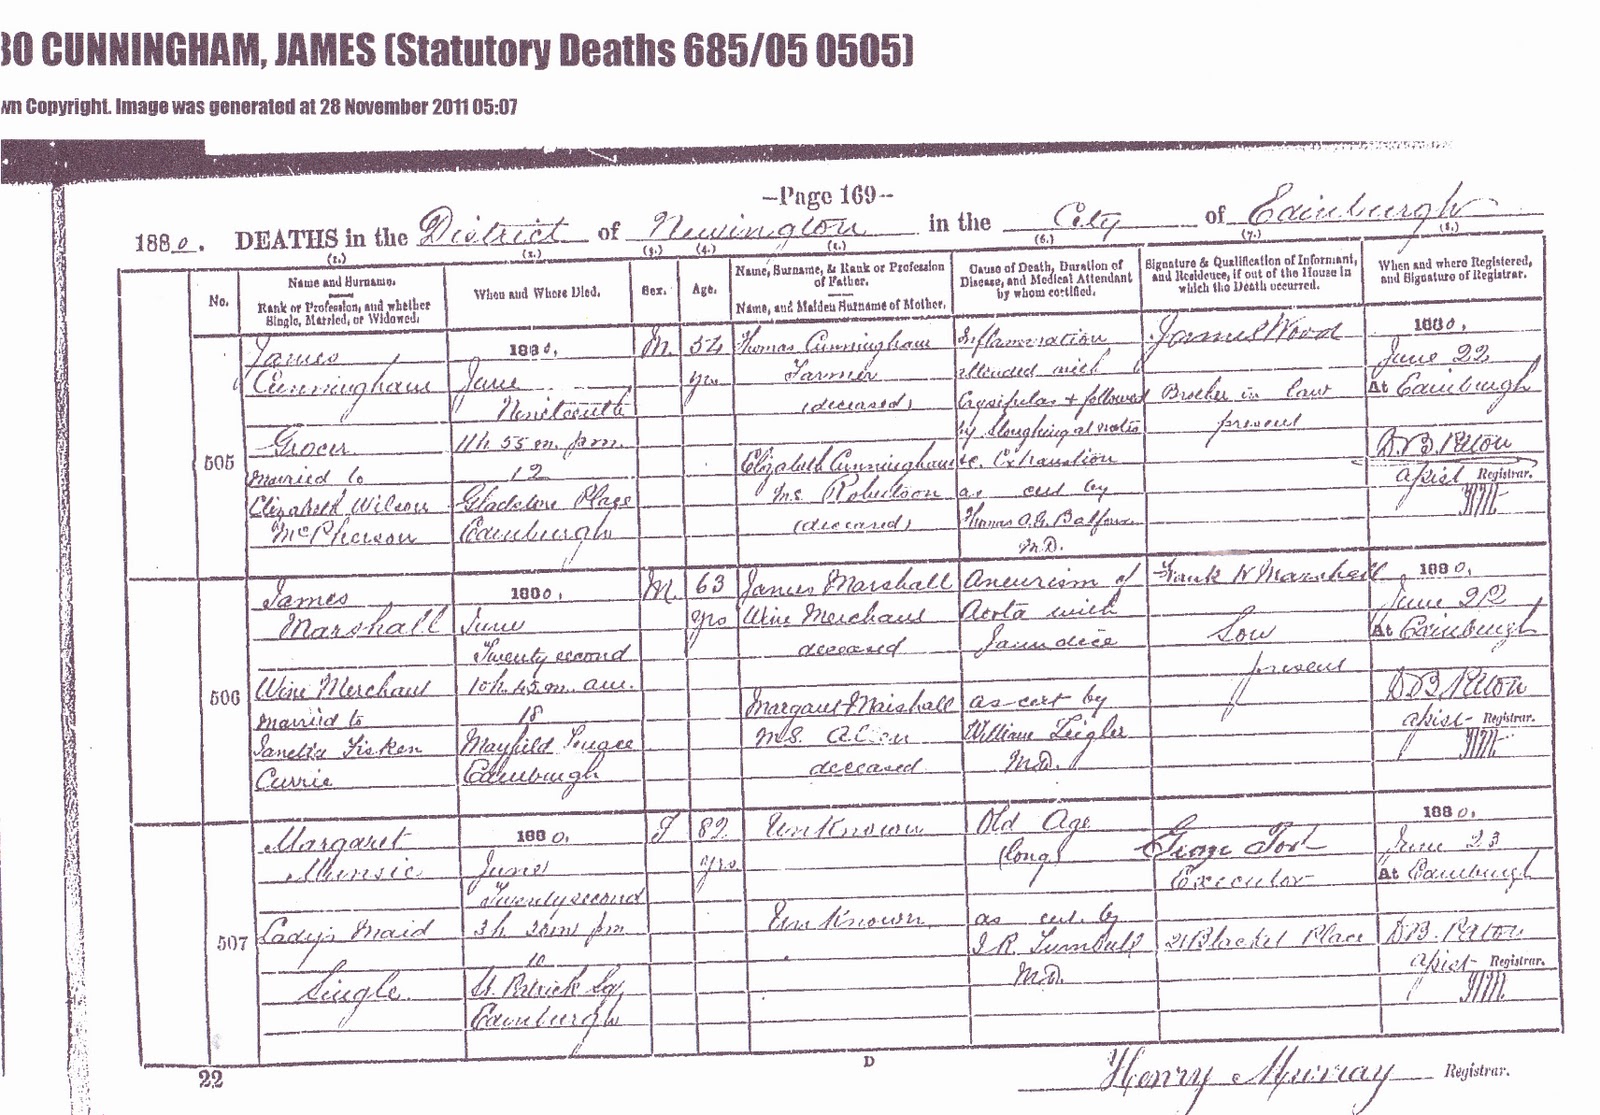 80 CUNNINGHAM, JAMES (Statutory Deaths 685/05 0505)
wn Copyright. Image was generated at 28 November 2011 05:07
--Page 169--
1880. DEATHS in the District of Newington in the City of Edinburgh
(1.) (2.) (3.) (4.) (5.) (6.) (7.) (8.)
No.
Name and Surname.
Rank or Profession, and whether
Single, Married, or Widowed.
When and Where Died.
Sex.
Age.
Name, Surname, & Rank or Profession
of Father.
Name, and Maiden Surname of Mother.
Cause of Death, Duration of
Disease, and Medical Attendant
by whom certified.
Signature & Qualification of Informant,
and Residence, if out of the House in
which the Death occurred.
When and where Registered,
and Signature of Registrar.
505
James
Cunningham
Grocer
Married to
Elizabeth Wilson
McPherson
1880.
June
Nineteenth
11h 55m. p.m.
12
Gladstone Place
Edinburgh
M.
54
yrs
Thomas Cunningham
Farmer
(deceased)
Elizabeth Cunningham
m.s. Robertson
(deceased)
Inflammation
attended with
Erysipelas & followed
by Sloughing
&c. Exhaustion
as cert by
Thomas A.G. Balfour
M.D.
James Wood
Brother in law
present
1880.
June 22
At Edinburgh
D.B. Paton
assist Registrar.
506
James
Marshall
Wine Merchant
Married to
Currie
1880.
June
Twenty second
10h. 45m. a.m.
18
Mayfield Terrace
Edinburgh
M.
63
yrs
James Marshall
Wine Merchant
deceased
Margaret Marshall
m.s. Allan
deceased
Aneurism of
Aorta with
Jaundice
as cert by
William Zeigler
M.D.
Frank W Marshall
Son
present
1880.
June 22
At Edinburgh
D.B. Paton
assist Registrar.
507
Margaret
Mensie
Lady's Maid
Single.
1880.
June
Twenty second
3h 30m pm
10
St. Patrick Sq
Edinburgh
F
82
yrs.
Unknown
Unknown
Old Age
(long)
as cert. by
J.R. Turnbull
M.D.
Executor
21 Blacket Place
1880.
June 23
At Edinburgh
D.B. Paton
assist Registrar.
22
D
Henry Murray Registrar.